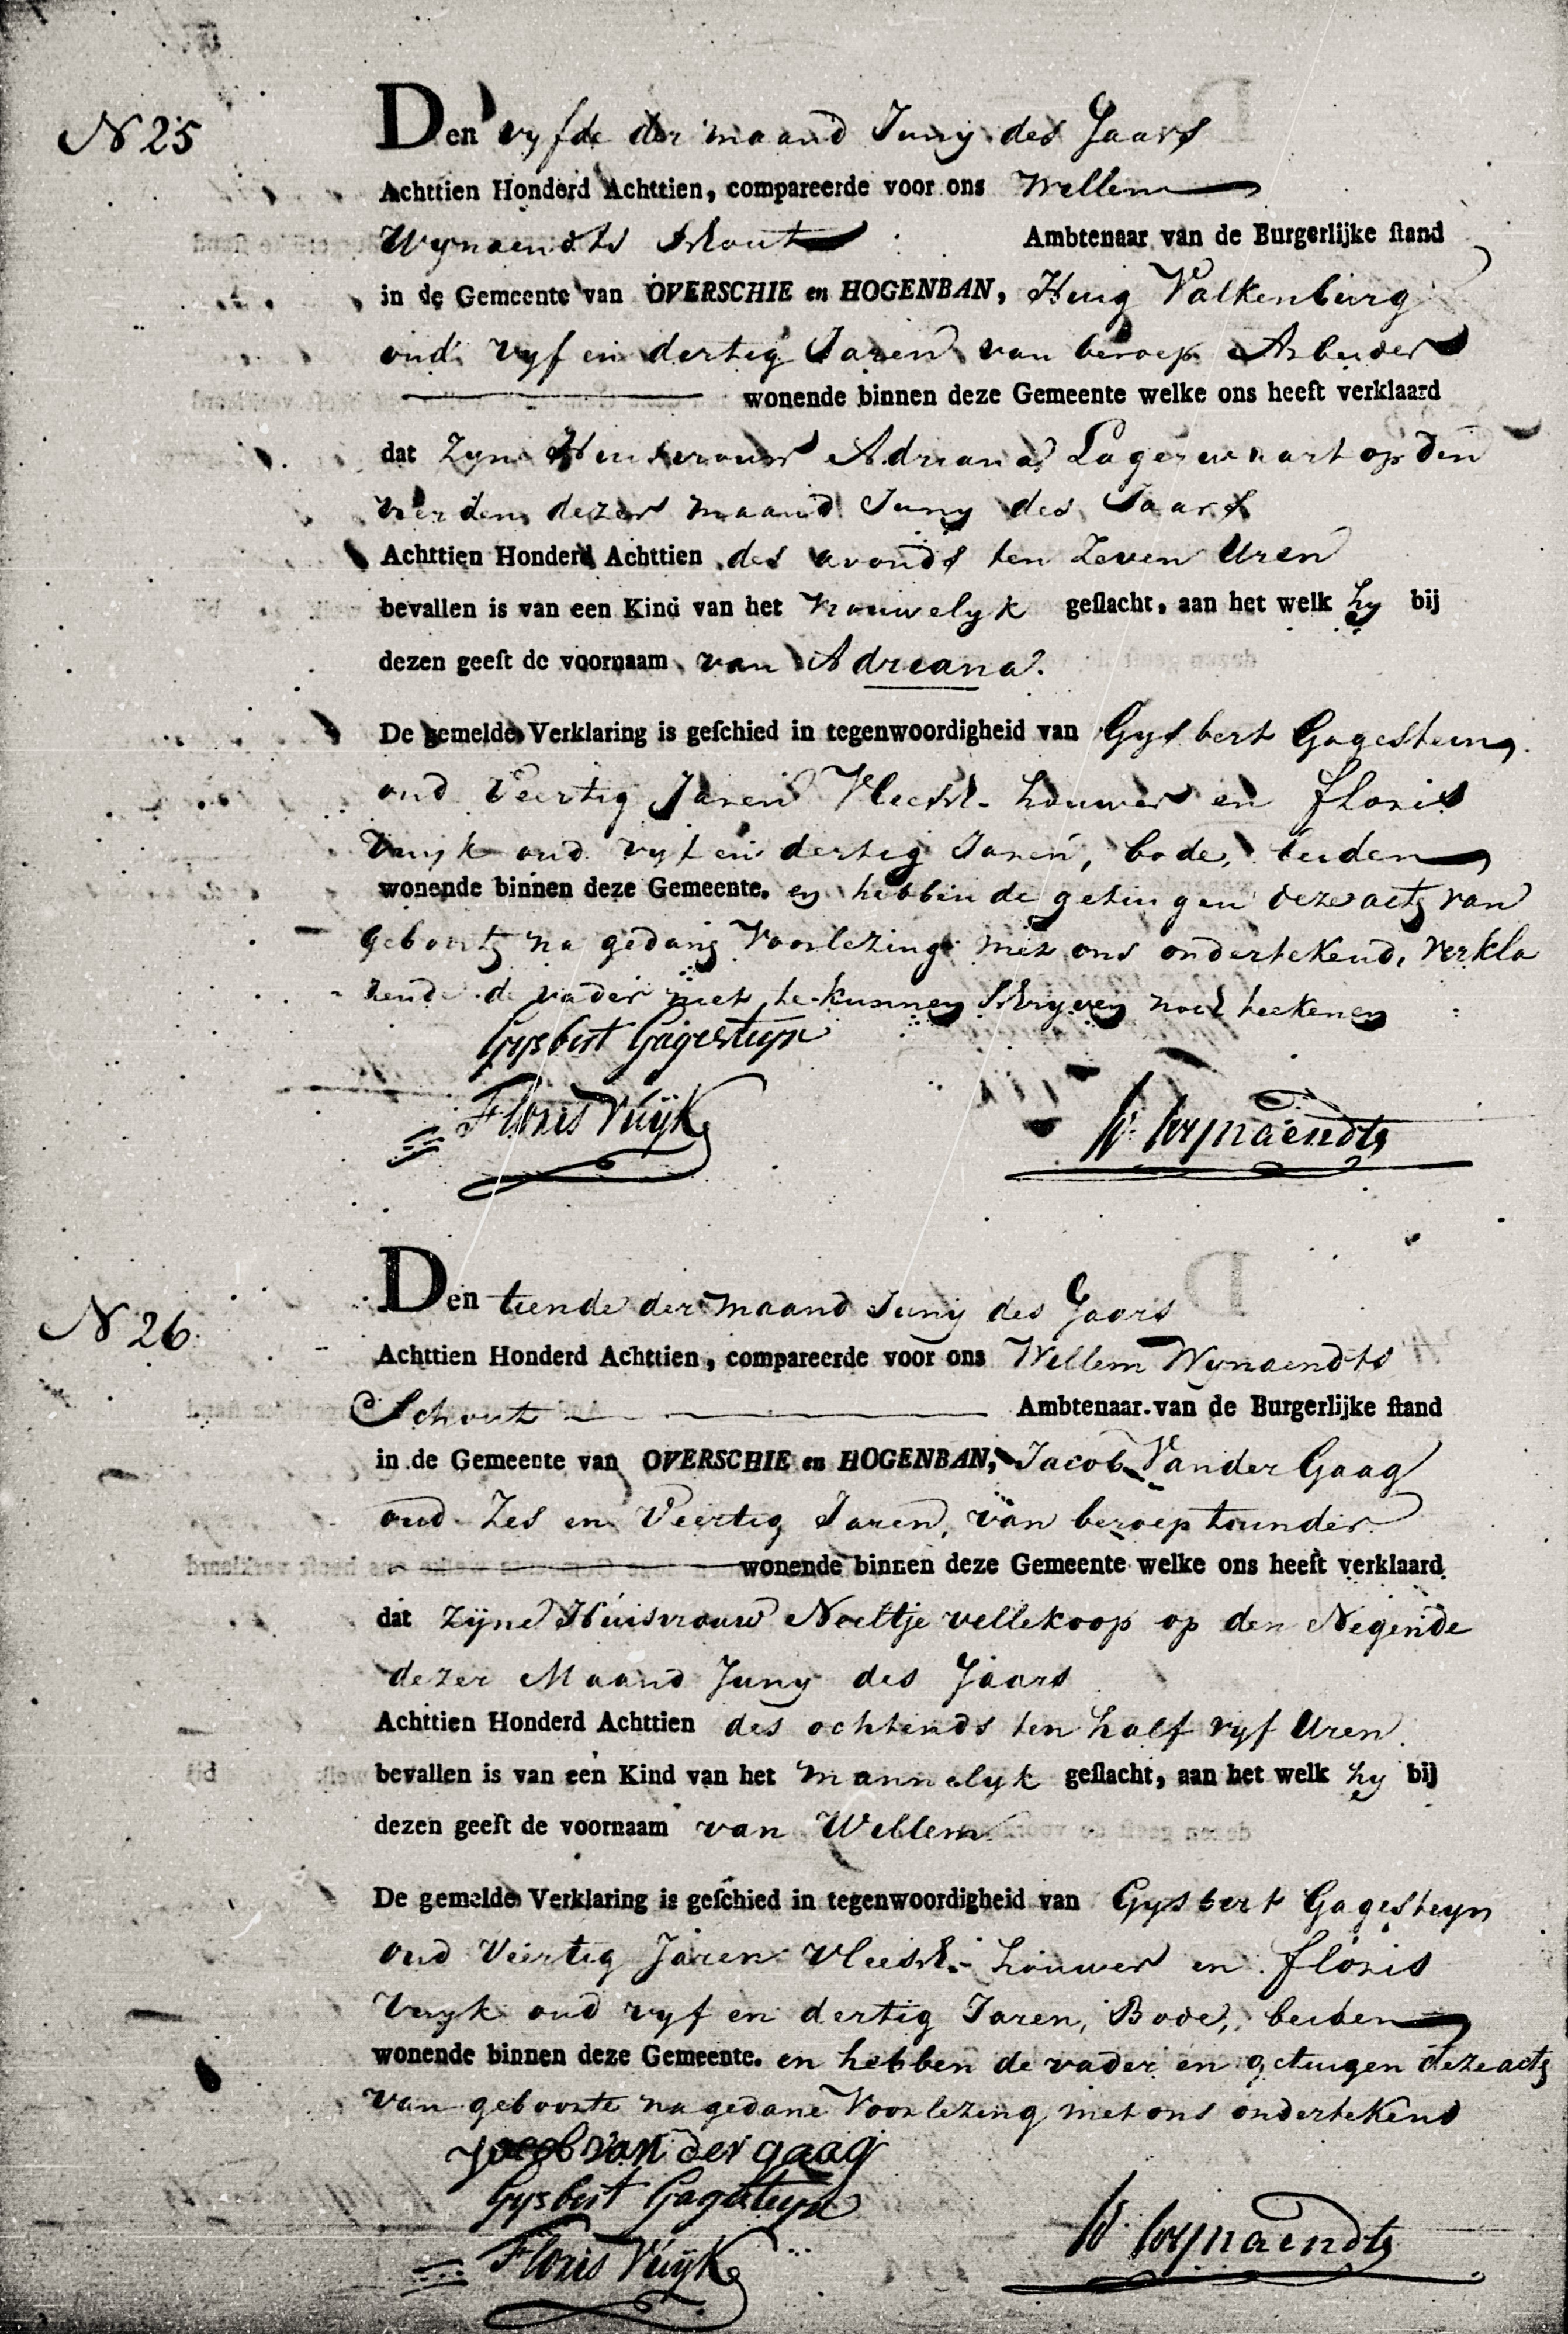 N 25
Den vyfde der maand Juny des Jaars
Achttien Honderd Achttien, compareerde voor ons Willem
Wynaendts Schout Ambtenaar van de Burgerlijke stand
in de Gemeente van OVERSCHIE en HOGENBAN, Huig Valkenburg
oud vyf en dertig Jaren van beroep Arbeider
wonende binnen deze Gemeente welke ons heeft verklaard
dat zyne Huisvrouw Adriana Lagerwaart op den
vierden dezer maand Juny des Jaars
Achttien Honderd Achttien des avonds ten Zeven Uren
bevallen is van een Kind van het vrouwelyk geslacht, aan het welk hy bij
dezen geeft de voornaam van Adriana.
De gemelde Verklaring is geschied in tegenwoordigheid van Gysbert Gagesteyn
oud Veertig Jaren Vleesch-houwer en floris
Vuyk oud vyf en dertig Jaren, bode, beiden
wonende binnen deze Gemeente. en hebben de getuigen deze acte van
geboorte na gedane Voorlezing met ons ondertekend, verkla
rende de vader niet te kunnen Schryven noch teekenen
Gysbert Gagesteyn
Floris Vuyk
W. Wynaendts
N 26.
Den tiende der maand Juny des Jaars
Achttien Honderd Achttien, compareerde voor ons Willem Wynaendts
Schout Ambtenaar van de Burgerlijke stand
in de Gemeente van OVERSCHIE en HOGENBAN, Jacob Van der Gaag
oud Zes en Veertig Jaren, van beroep tuinder
wonende binnen deze Gemeente welke ons heeft verklaard
dat zijne Huisvrouw Neeltje vellekoop op den Negende
dezer Maand Juny des Jaars
Achttien Honderd Achttien des ochtends ten half vyf Uren
bevallen is van een Kind van het mannelyk geslacht, aan het welk hy bij
dezen geeft de voornaam van Willem
De gemelde Verklaring is geschied in tegenwoordigheid van Gysbert Gagesteyn
oud Veertig Jaren Vleesch-houwer en floris
Vuyk oud vyf en dertig Jaren, Bode, beiden
wonende binnen deze Gemeente. en hebben de vader en getuigen deze acte
van geboorte na gedane Voorlezing met ons ondertekend
Jacob van der gaag
Gysbert Gagesteyn
Floris Vuyk
W. Wynaendts